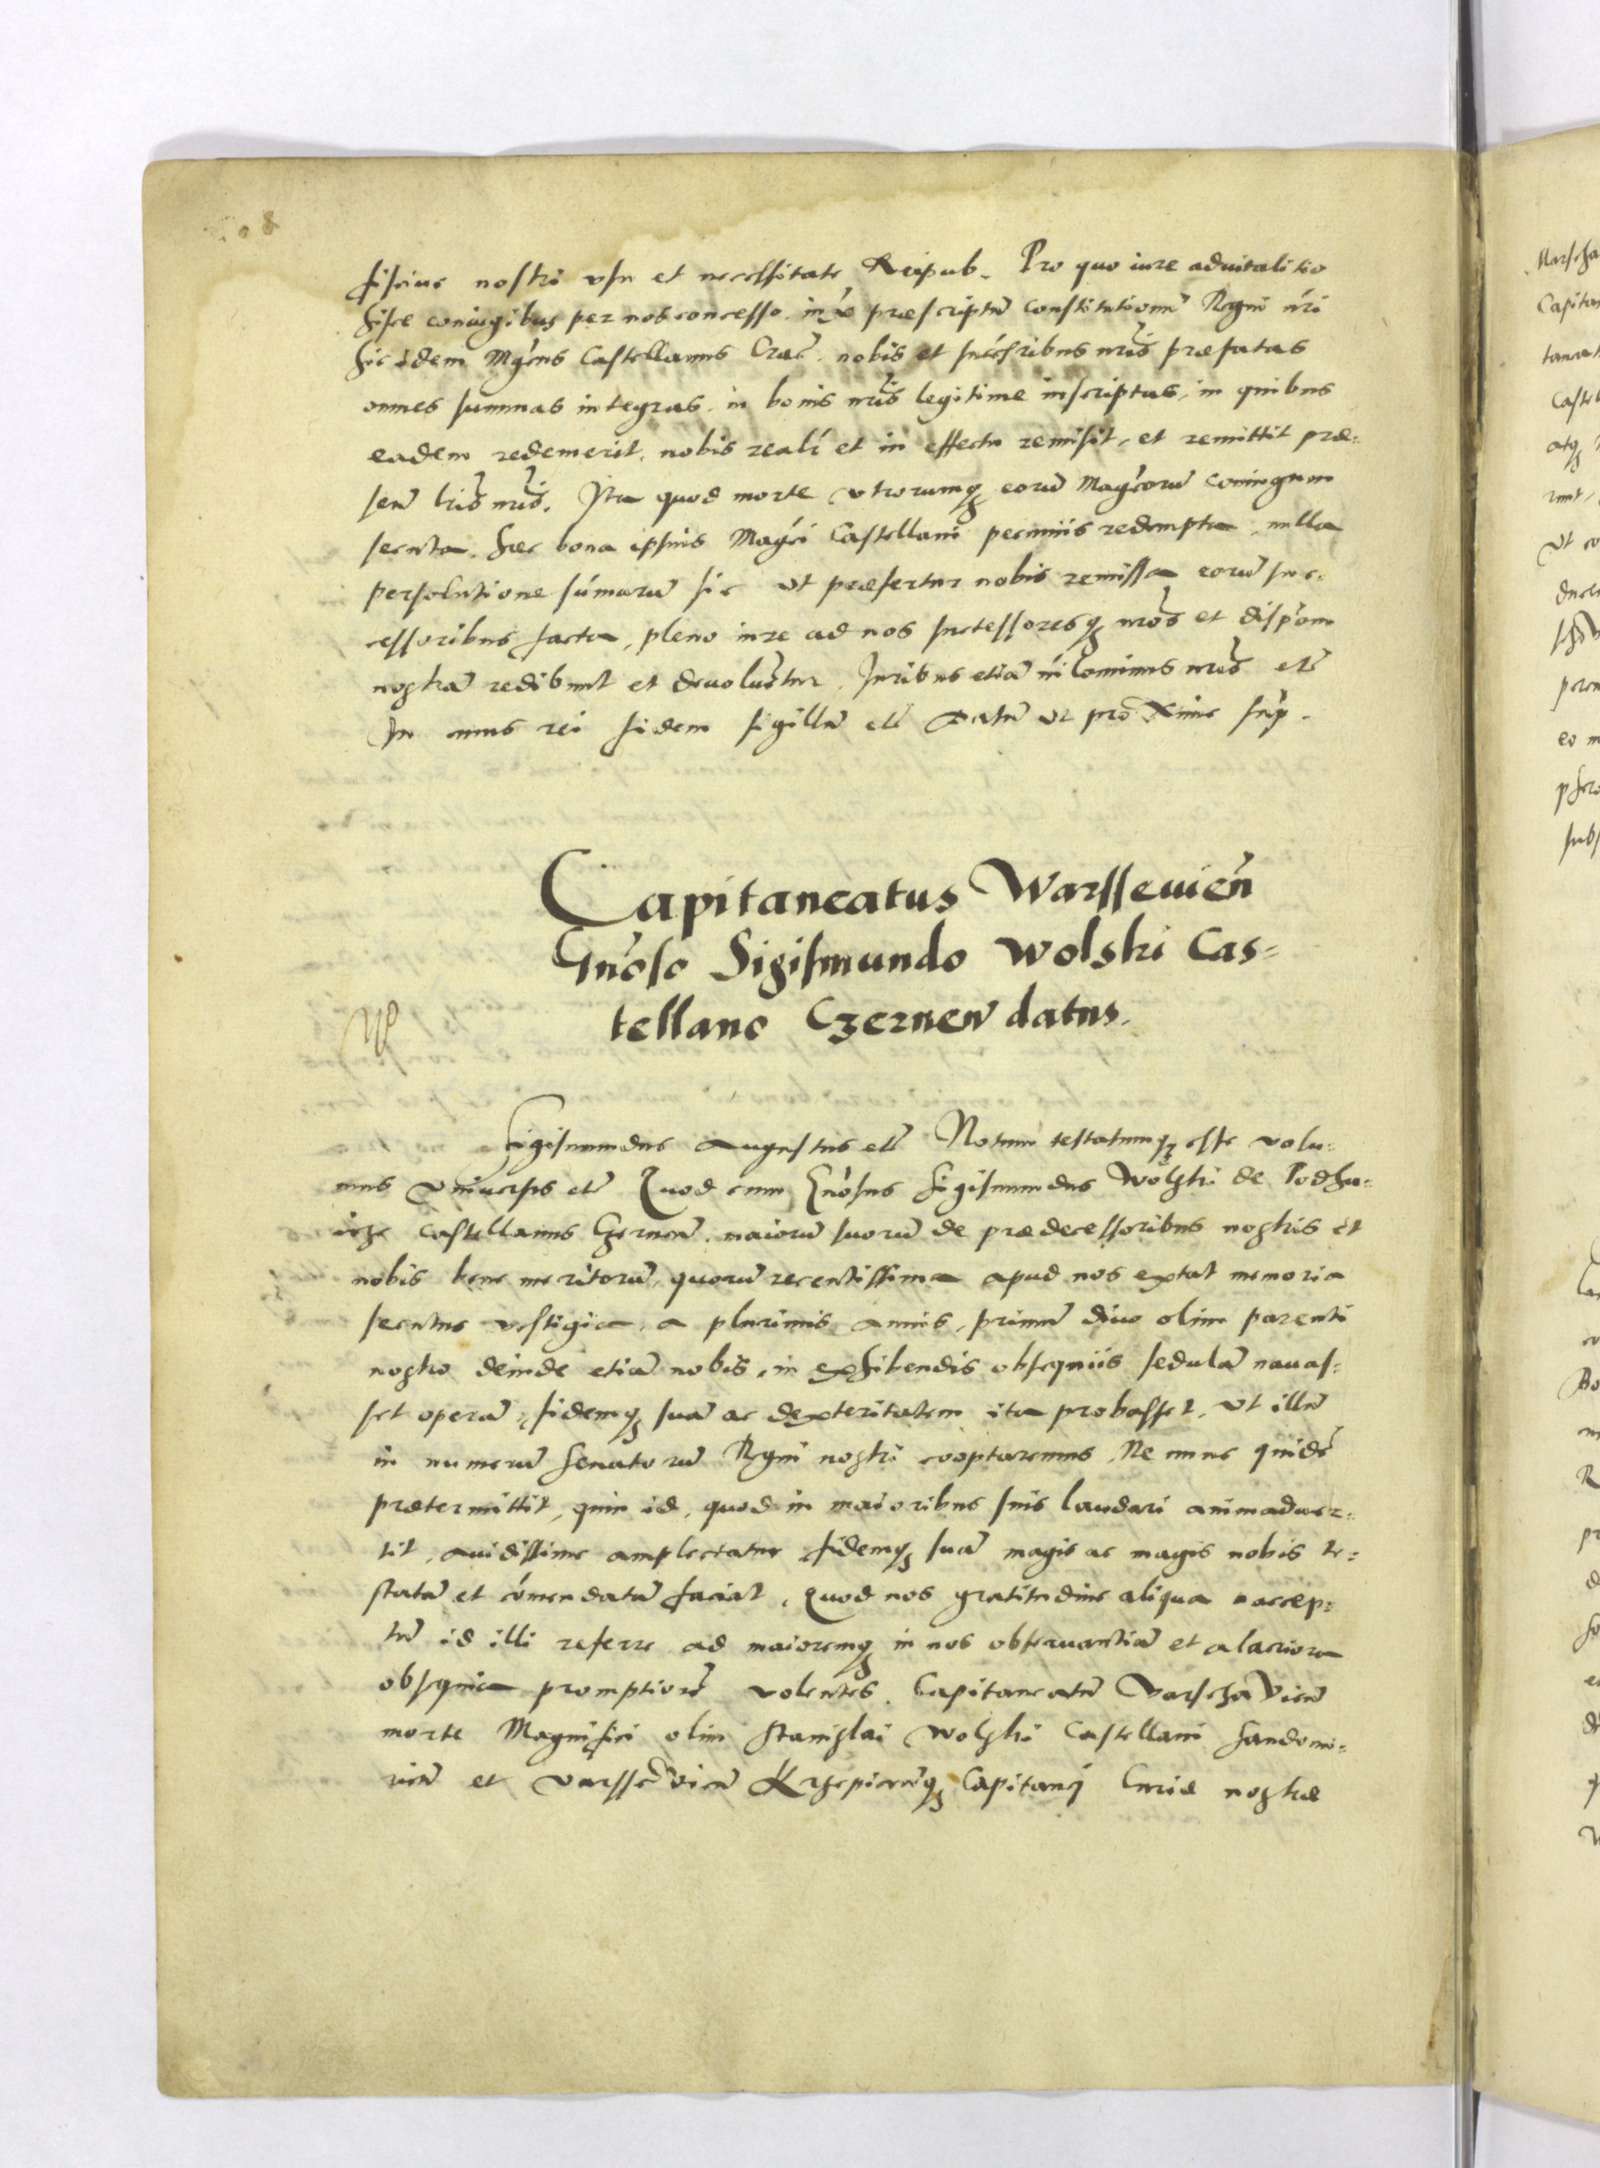 fiscius nostri usu et necessitate Reipub. Pro quo iure aduitalitio
hisce coniugibus per nos concesso, iuxa præscriptũ constitutionũ Regni nri
hic idem Mgcus Castellanus Crac. nobis et succēribus nris præfatas
omnes summas integras, in bonis nris legitime inscriptas, in quibus
eadem redemerit, nobis reali et in effectu remisit, et remittit præ-
senē lris nris. Ita quod morte utrorumq; eorũ Magcorũ coniugum
secuta. hæc bona ipsius Magci Castellani pecuniis redempta, nulla
persolutione sũmarũ sic ut præfertur nobis remissa eorũ suc-
cessoribus facta, pleno iure ad nos successoresq; nros et disponem
nostrã redibunt et deuoluētur. Iuribus etiã nilominus nris etc
In cuius rei fidem sigillũ etc Datũ ut proxime supr.
Capitaneatus Warsseuien̄
Gn̄oso Sigismundo Wolski Cas-
tellano Czernen̄ datus.
Sigismundus Augustus etc Notum testatumq; esse volu-
mus Vniuersis etc Quod cum Gn̄osus Sigismundus Wolski de Podha-
icze Castellanus Czernen̄, maiorũ suorũ de prædecessoribus nostris et
nobis bene meritorũ, quorũ recentissima apud nos extat memoria
secutus vestigia, a plurimis annis, primũ diuo olim parenti
nostro deinde etiã nobis, in exhibendis obsequiis sedulã nauas-
set operã, fidemq; suã ac dexteritatem ita probasset, ut illũ
in numerũ Senatorũ Regni nostri cooptaremus, Ne nunc quidē
prætermittit, quin id, quod in maioribus suis laudari animaduer-
tit, auidissime amplectatur fidemq; suã magis ac magis nobis te-
statã et cōmendatã faciat, Quod nos gratitudine aliqua accep-
tũ id illi referre ad maioremq; in nos obseruantiã et alacriora
obsequia promptiorē volentes. Capitaneatũ Varschauien̄
morte Magnifici olim Stanislai Wolski Castellani Sandomi-
rien̄ et Varsseuien̄ Krzepicen̄q; Capitanei Curiæ nostræ